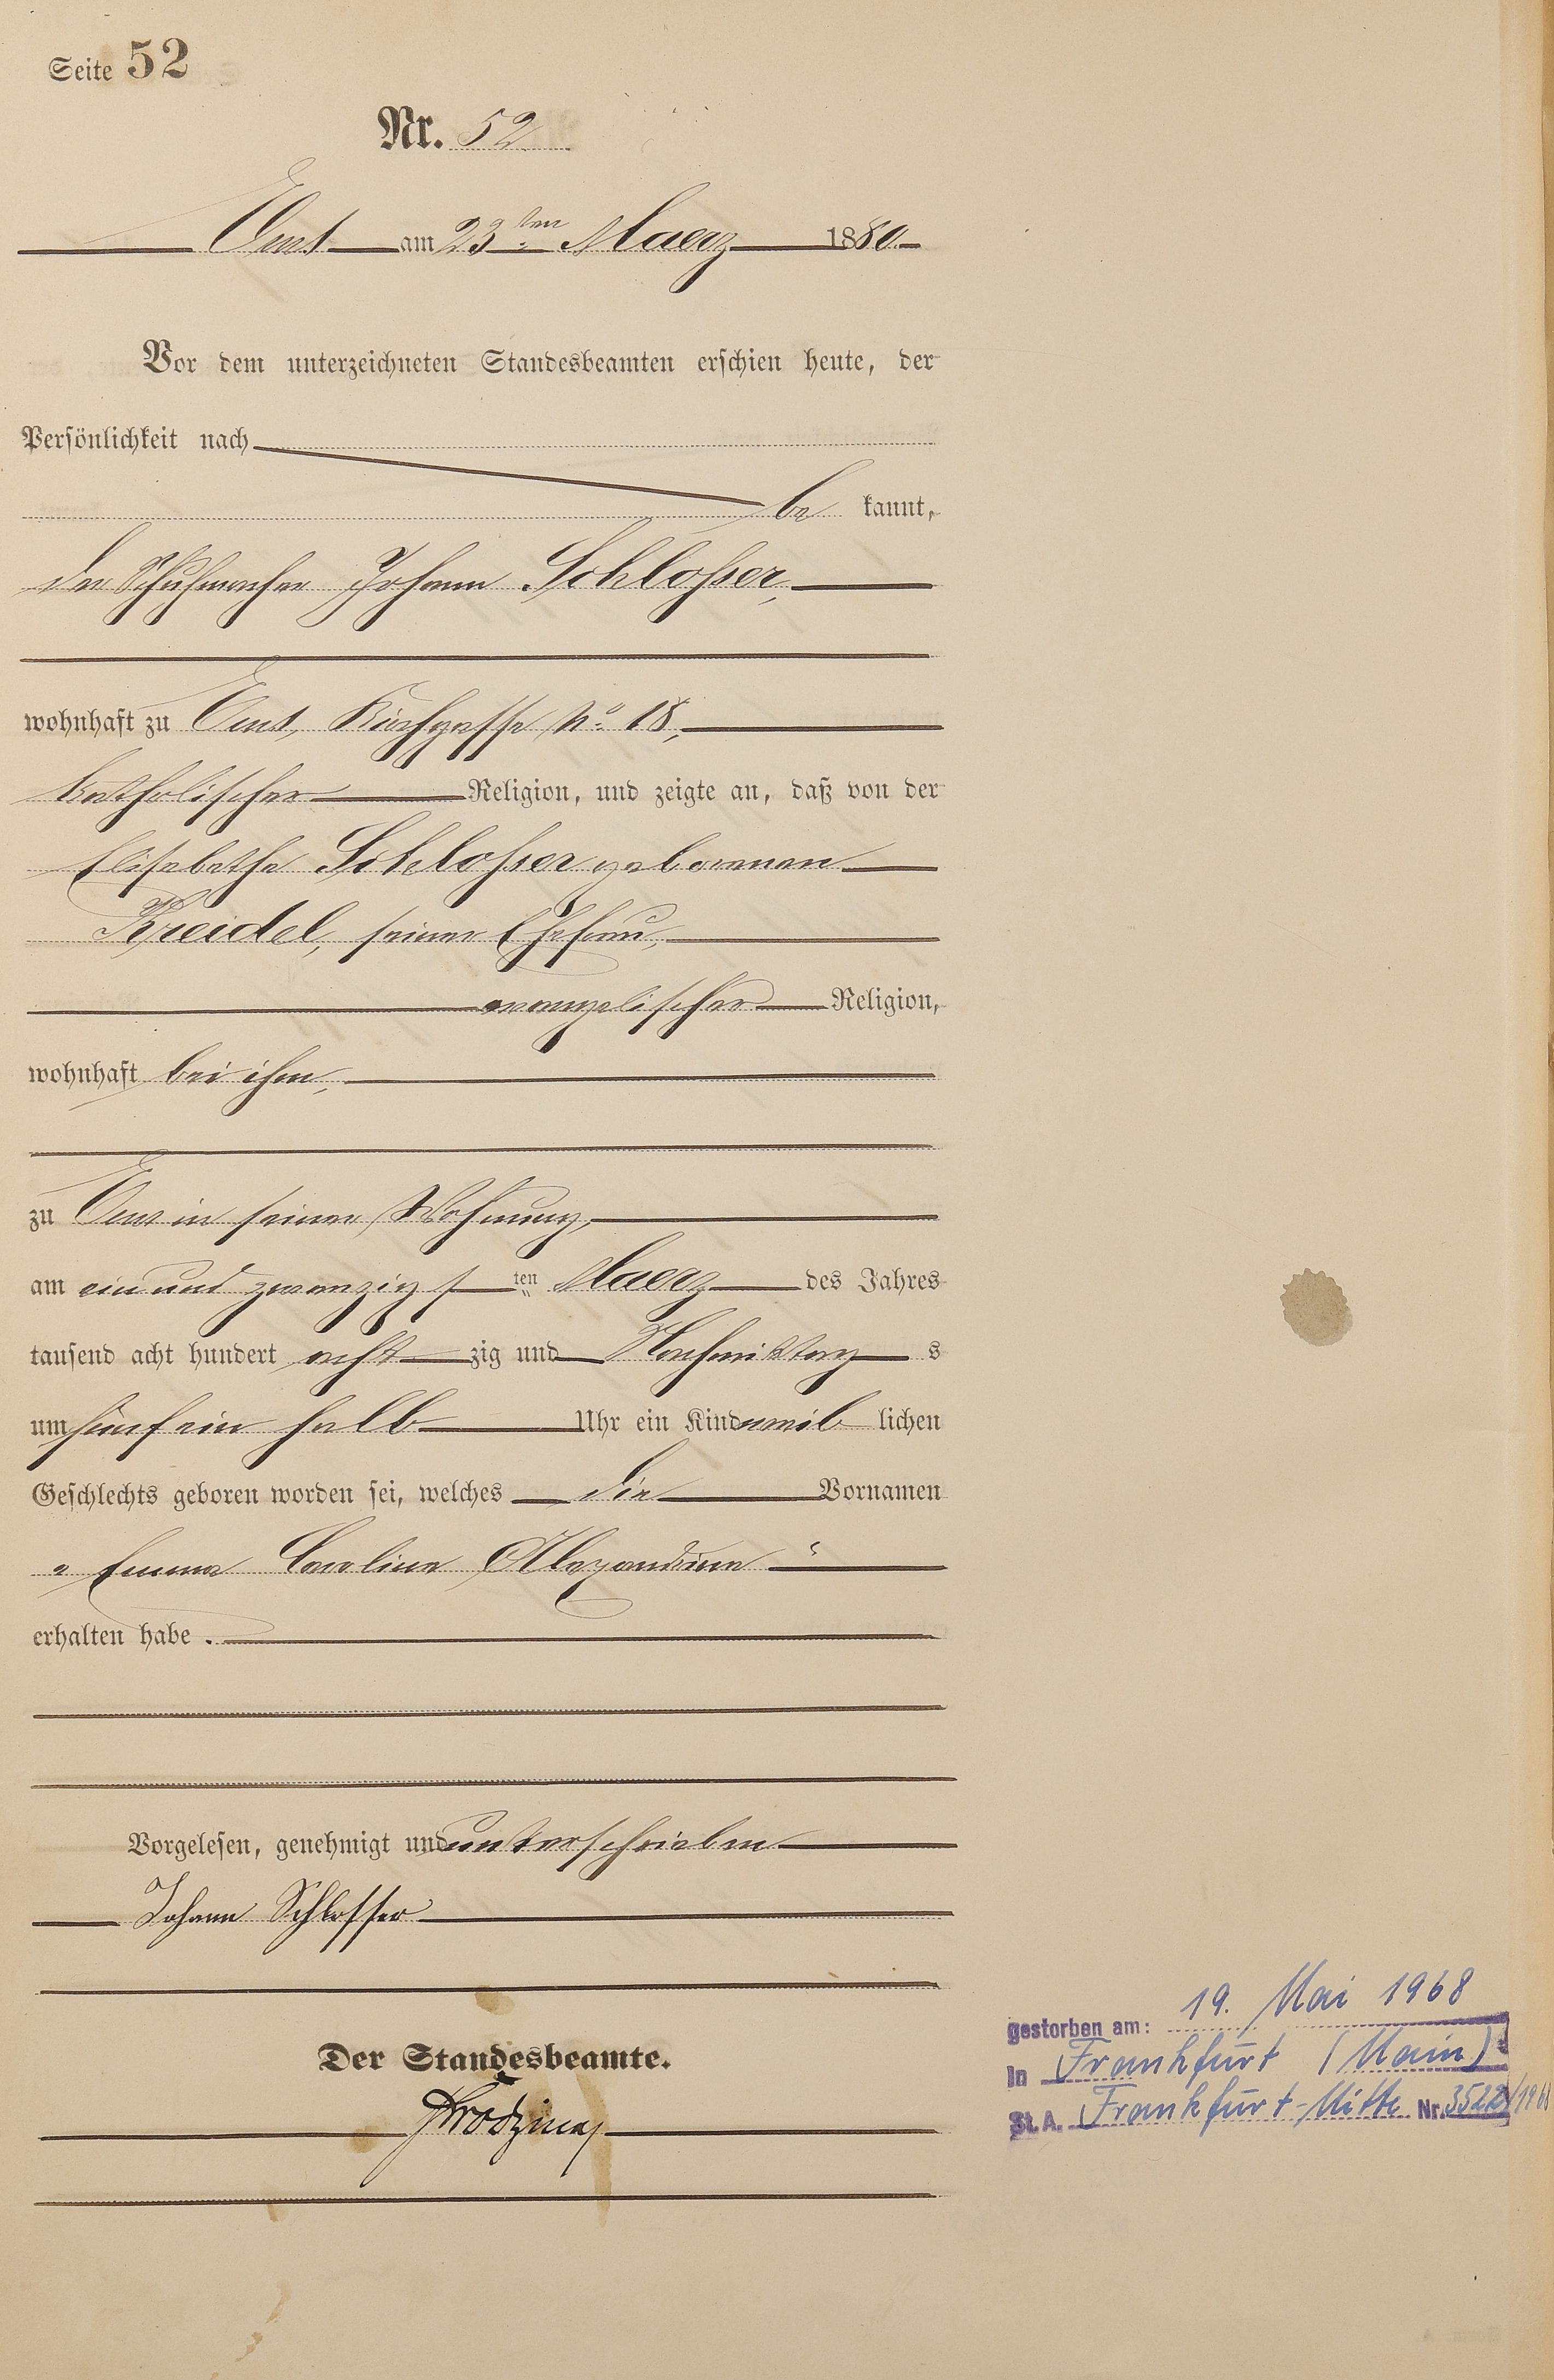 Seite 52
Nr. 52
Ems am 23ten Maerz 1880
Vor dem unterzeichneten Standesbeamten erschien heute, der
Persönlichkeit nach
be kannt,
der Schuhmacher Johann Schloßer,
wohnhaft zu Ems, Kirchgasse No. 18,
katholischer Religion, und zeigte an, daß von der
Elisabetha Schloßer geborenen
Kreidel, seiner Ehefrau,
evangelischer Religion,
wohnhaft bei ihm,
zu Ems in seiner Wohnung,
am ein und zwanzigsten Maerz des Jahres
tausend acht hundert achtzig und Nachmittags
um fünf ein halb Uhr ein Kind weiblichen
Geschlechts geboren worden sei, welches die Vornamen
„Emma Caroline Alexandrine“
erhalten habe.
Vorgelesen, genehmigt und unterschrieben
Johann Schlosser
Der Standesbeamte.
gestorben am: 19. Mai 1968
In Frankfurt (Main)
St. A. Frankfurt-Mitte Nr. 3522/1968